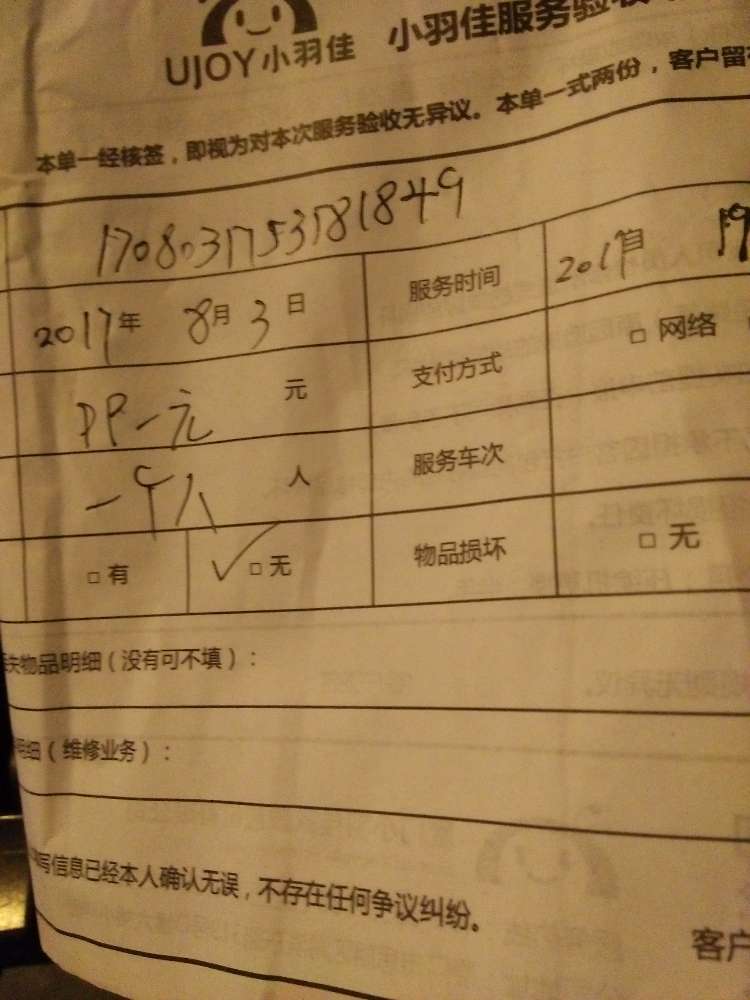 UJOY小羽佳 小羽佳服务验收
本单一经核签，即视为对本次服务验收无异议。本单一式两份，客户留
170803753781849
2017年 8月3日 服务时间 2017
一元 元 支付方式 □ 网络
一个人 人 服务车次
□ 有 ✓□ 无 物品损坏 □ 无
失物品明细（没有可不填）：
明细（维修业务）：
写信息已经本人确认无误，不存在任何争议纠纷。
客户